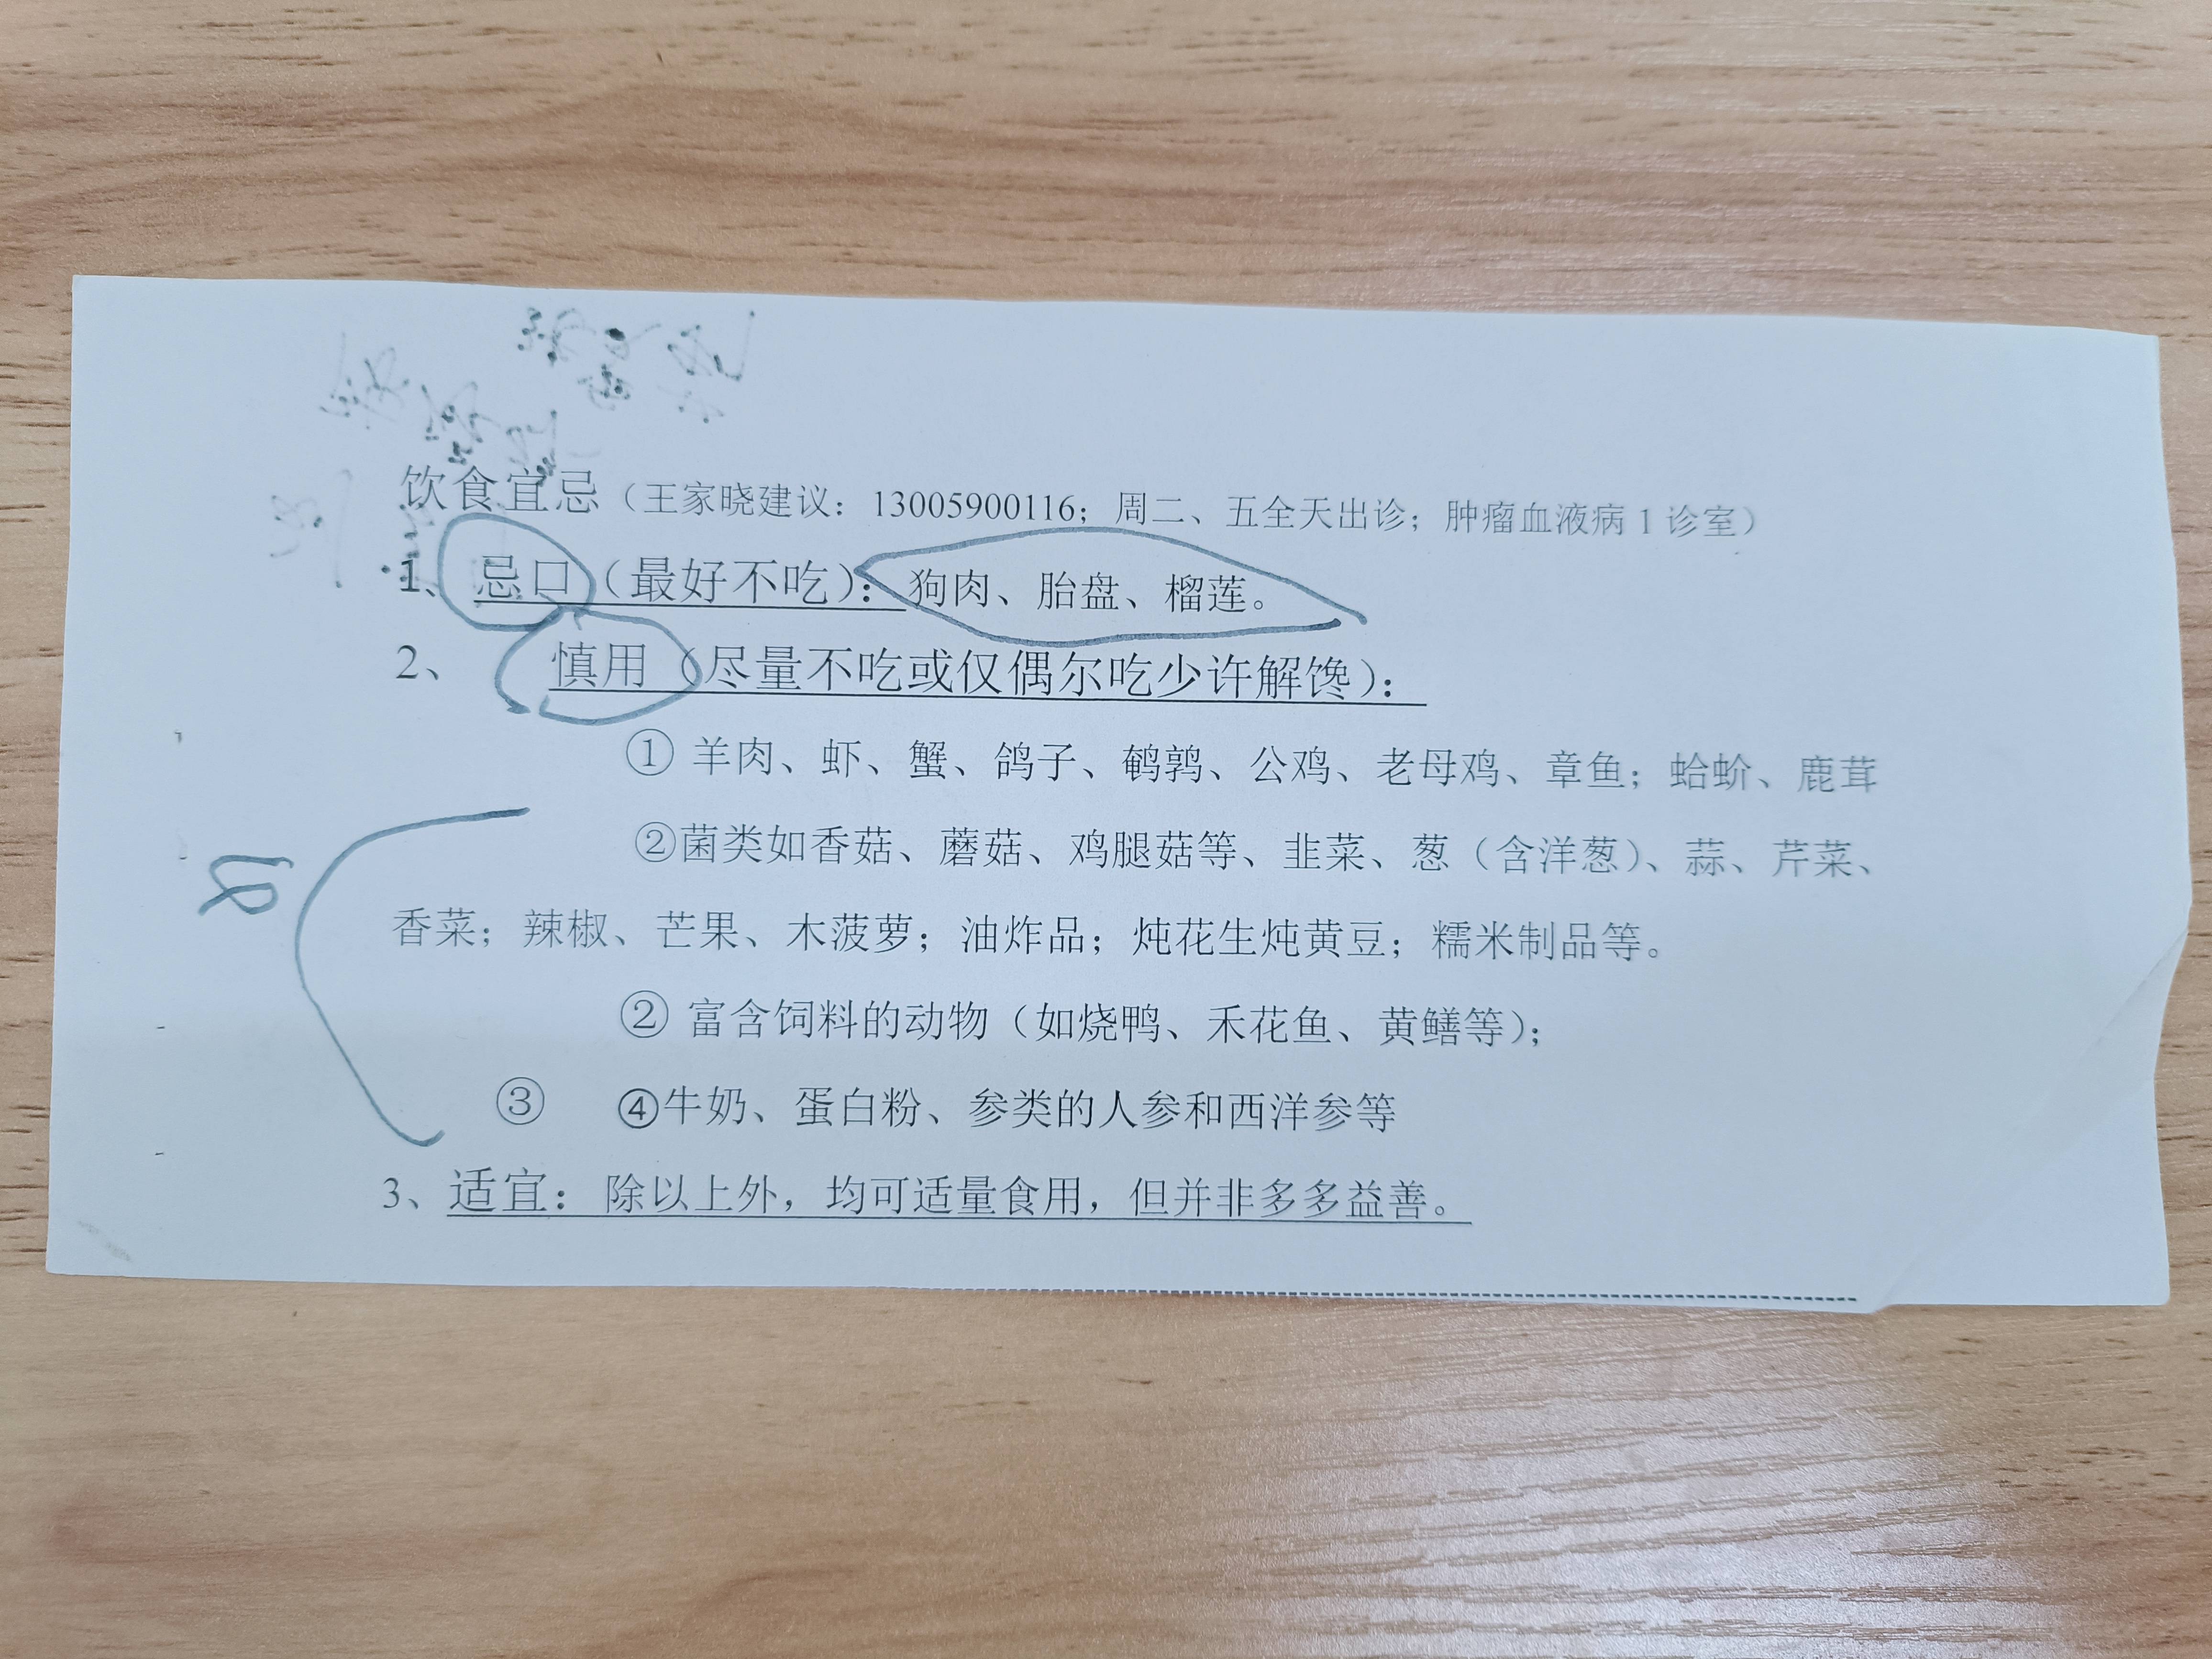 饮食宜忌（王家晓建议：13005900116；周二、五全天出诊；肿瘤血液病1诊室）
1、忌口（最好不吃）：狗肉、胎盘、榴莲。
2、慎用（尽量不吃或仅偶尔吃少许解馋）：
① 羊肉、虾、蟹、鸽子、鹌鹑、公鸡、老母鸡、章鱼；蛤蚧、鹿茸
②菌类如香菇、蘑菇、鸡腿菇等、韭菜、葱（含洋葱）、蒜、芹菜、
香菜；辣椒、芒果、木菠萝；油炸品；炖花生炖黄豆；糯米制品等。
② 富含饲料的动物（如烧鸭、禾花鱼、黄鳝等）；
③ ④牛奶、蛋白粉、参类的人参和西洋参等
3、适宜：除以上外，均可适量食用，但并非多多益善。